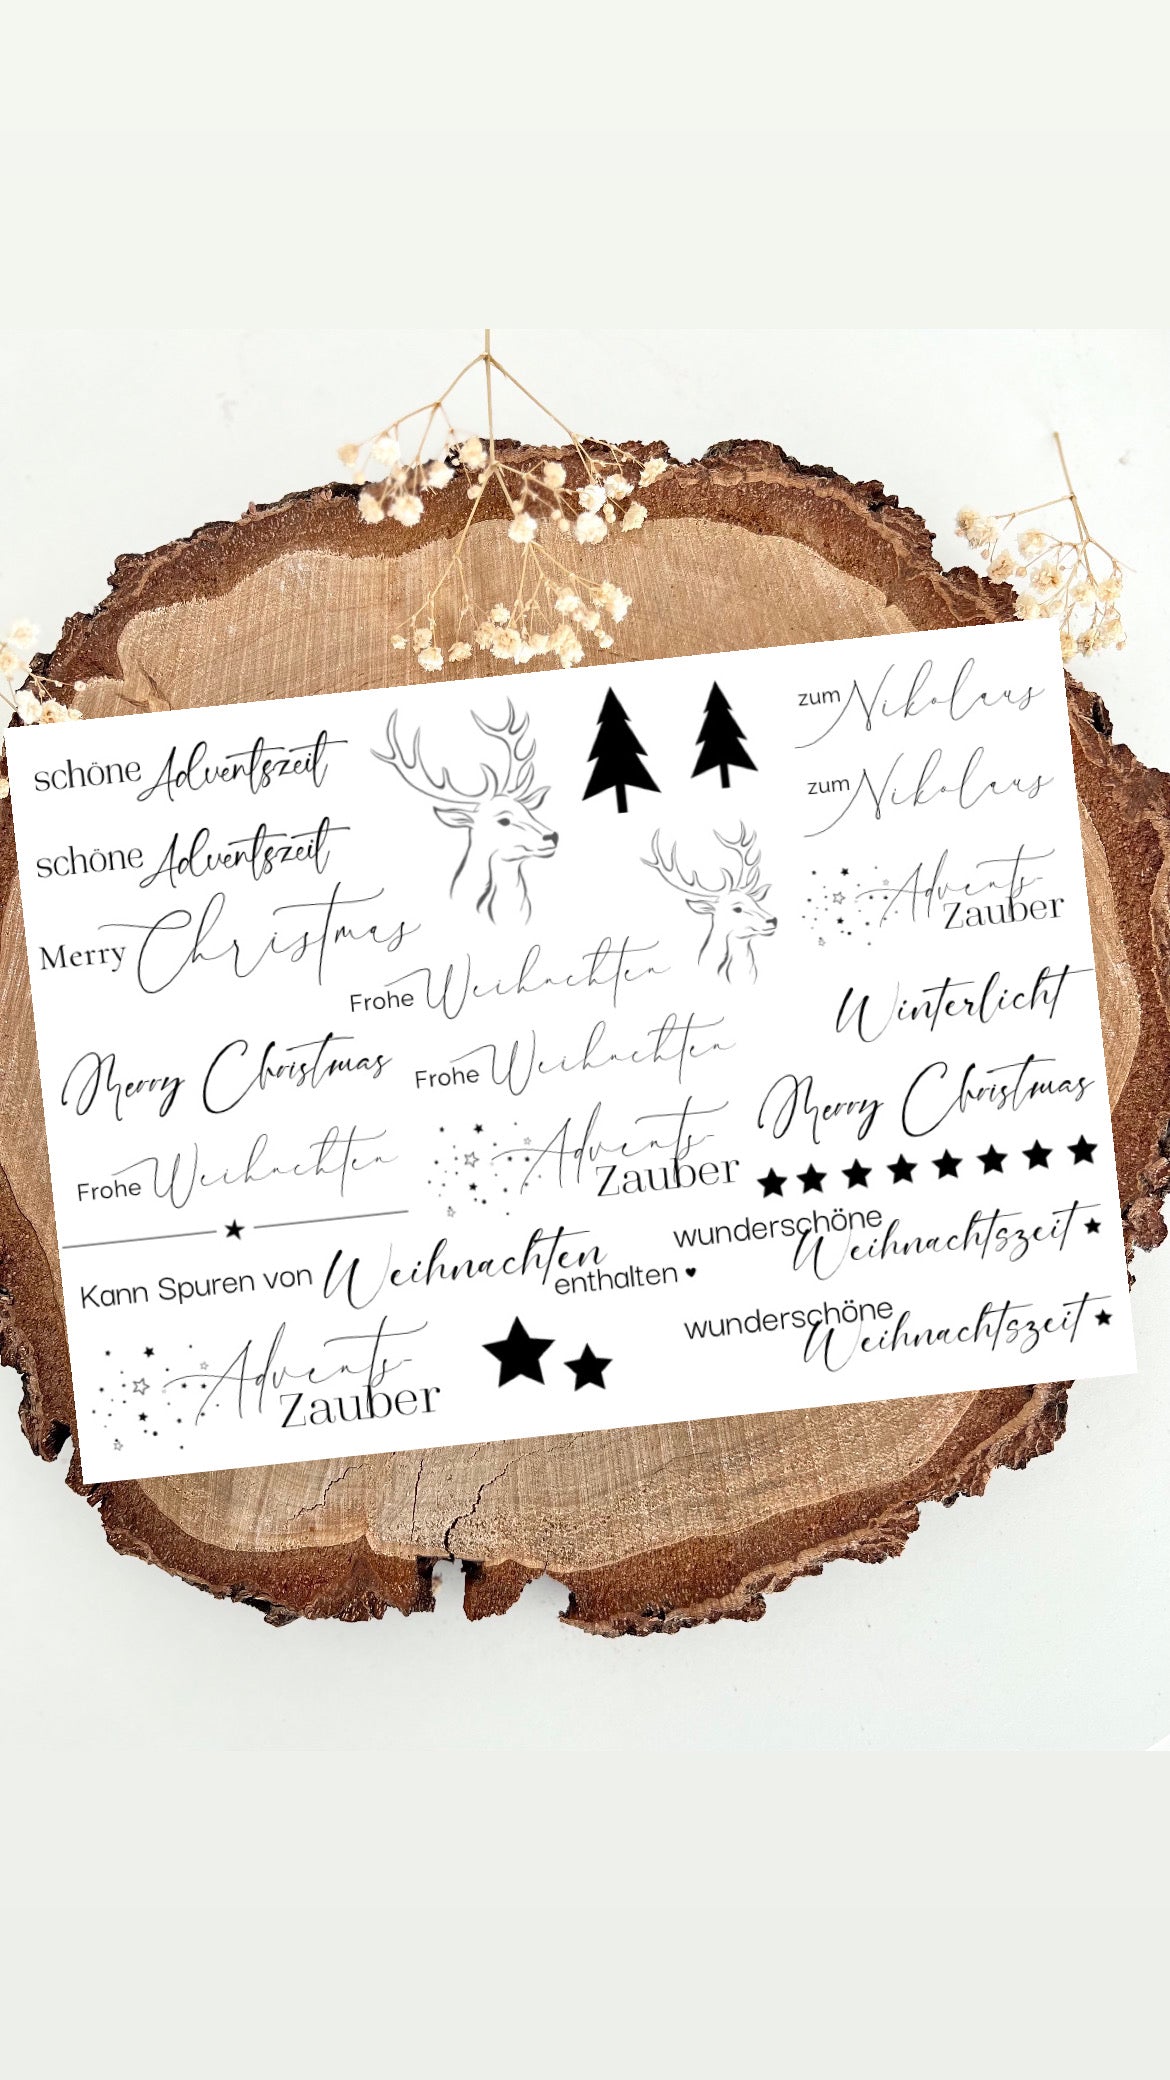 schöne Adventszeit
schöne Adventszeit
Merry Christmas
Merry Christmas
Frohe Weihnachten
Frohe Weihnachten
Frohe Weihnachten
zum Nikolaus
zum Nikolaus
Advents-
Zauber
Winterlicht
Merry Christmas
Advents-
Zauber
Kann Spuren von Weihnachten
enthalten
wunderschöne
Weihnachtszeit
wunderschöne
Weihnachtszeit
Advents-
Zauber